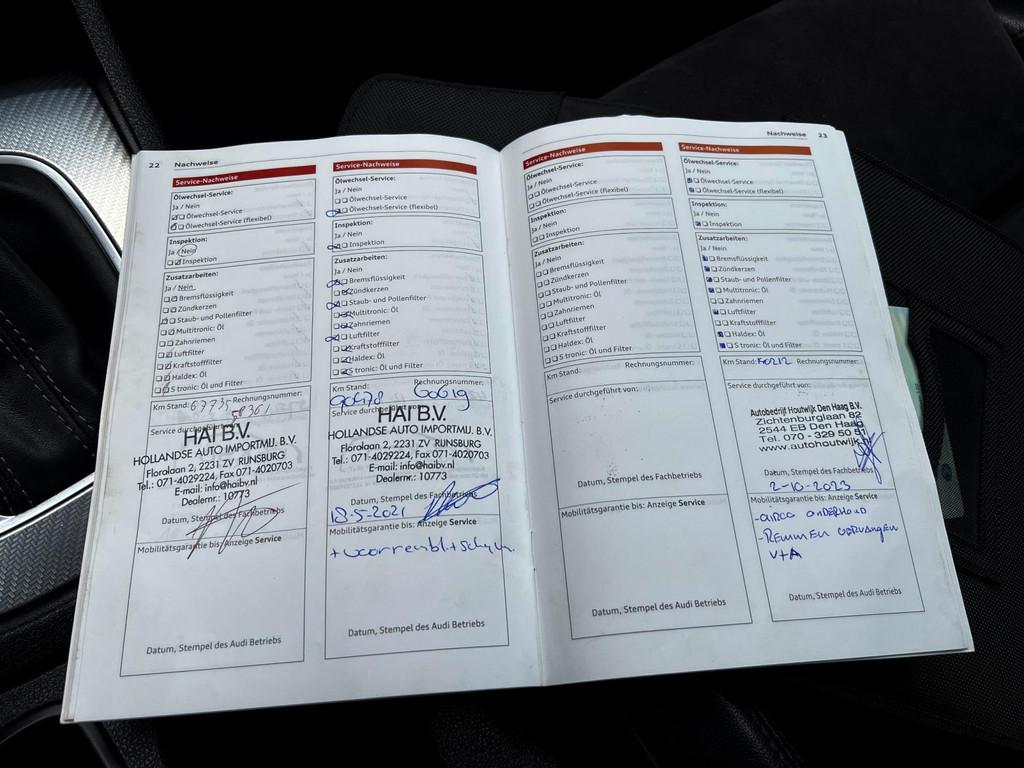 22 Nachweise
Service-Nachweise
Ölwechsel-Service:
Ja / Nein
Ölwechsel-Service
Ölwechsel-Service (flexibel)
Inspektion:
Ja / Nein
Inspektion
Zusatzarbeiten:
Ja / Nein
Bremsflüssigkeit
Zündkerzen
Staub- und Pollenfilter
Multitronic: Öl
Zahnriemen
Luftfilter
Kraftstofffilter
Haldex: Öl
S tronic: Öl und Filter
Km Stand: 67735 Rechnungsnummer:
58361
Service durchgeführt
HAI B.V.
HOLLANDSE AUTO IMPORTMIJ. B.V.
Floralaan 2, 2231 ZV RIJNSBURG
Tel.: 071-4029224, Fax 071-4020703
E-mail: info@haibv.nl
Dealernr.: 10773
Datum, Stempel des Fachbetriebs
Mobilitätsgarantie bis: Anzeige Service
Datum, Stempel des Audi Betriebs
Service-Nachweise
Ölwechsel-Service:
Ja / Nein
Ölwechsel-Service
Ölwechsel-Service (flexibel)
Inspektion:
Ja / Nein
Inspektion
Zusatzarbeiten:
Ja / Nein
Bremsflüssigkeit
Zündkerzen
Staub- und Pollenfilter
Multitronic: Öl
Zahnriemen
Luftfilter
Kraftstofffilter
Haldex: Öl
S tronic: Öl und Filter
Km Stand: Rechnungsnummer:
60619
Service durchgeführt von:
HAI B.V.
HOLLANDSE AUTO IMPORTMIJ. B.V.
Floralaan 2, 2231 ZV RIJNSBURG
Tel.: 071-4029224, Fax 071-4020703
E-mail: info@haibv.nl
Dealernr.: 10773
Datum, Stempel des Fachbetriebs
18-5-2021
Mobilitätsgarantie bis: Anzeige Service
Datum, Stempel des Audi Betriebs
Nachweise 23
Service-Nachweise
Ölwechsel-Service:
Ja / Nein
Ölwechsel-Service
Ölwechsel-Service (flexibel)
Inspektion:
Ja / Nein
Inspektion
Zusatzarbeiten:
Ja / Nein
Bremsflüssigkeit
Zündkerzen
Staub- und Pollenfilter
Multitronic: Öl
Zahnriemen
Luftfilter
Kraftstofffilter
Haldex: Öl
S tronic: Öl und Filter
Km Stand: Rechnungsnummer:
Service durchgeführt von:
Datum, Stempel des Fachbetriebs
Mobilitätsgarantie bis: Anzeige Service
Datum, Stempel des Audi Betriebs
Service-Nachweise
Ölwechsel-Service:
Ja / Nein
Ölwechsel-Service
Ölwechsel-Service (flexibel)
Inspektion:
Ja / Nein
Inspektion
Zusatzarbeiten:
Ja / Nein
Bremsflüssigkeit
Zündkerzen
Staub- und Pollenfilter
Multitronic: Öl
Zahnriemen
Luftfilter
Kraftstofffilter
Haldex: Öl
S tronic: Öl und Filter
Km Stand: Rechnungsnummer:
Service durchgeführt von:
Autobedrijf Houtwijk Den Haag B.V.
Zichtenburglaan 82
2544 EB Den Haag
Tel. 070 - 329 50 81
www.autohoutwijk.nl
Datum, Stempel des Fachbetriebs
2-10-2023
Mobilitätsgarantie bis: Anzeige Service
-airco onderhoud
-Remmen vervangen
V+A
Datum, Stempel des Audi Betriebs